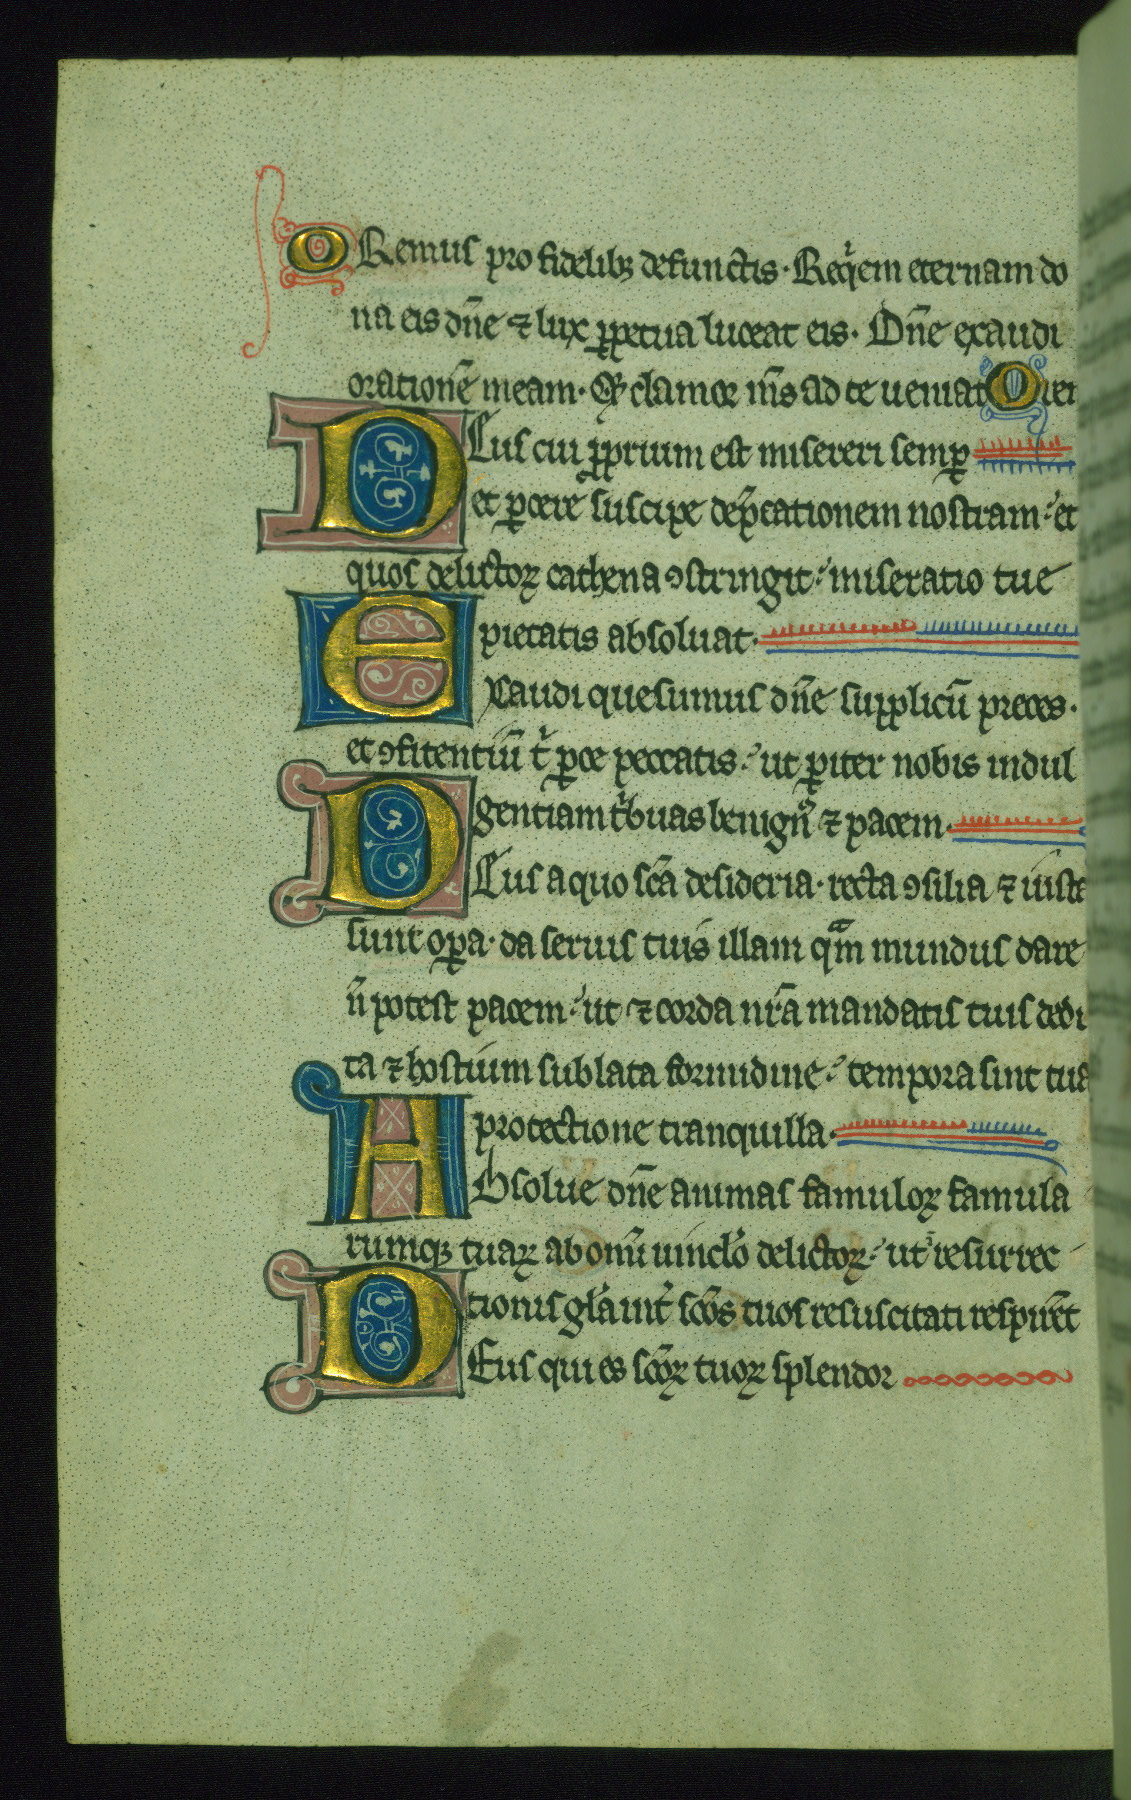 ORemus pro fidelibꝫ defunctis · Reqͥem eternam do
na eis dn̄e ⁊ lux ꝑpetua luceat eis · Dn̄e exaudi
orationē meam · Et clamor m̄s ad te ueniat Orem
DEus cui ꝓprium est misereri semꝑ
et ꝑcere suscipe dep̄cationem nostram · et
quos delictoꝝ cathena ꝯstringit · miseratio tue
pietatis absoluat ·
Exaudi quesumus dn̄e supplicū preces ·
et ꝯfitentiū tͥ ꝑce peccatis · ut ꝑiter nobis indul
gentiam tͥbuas benignꝰ ⁊ pacem ·
DEus a quo sc̄a desideria · recta ꝯsilia ⁊ iusta
sunt oꝑa · da seruis tuis illam qᵃm mundus dare
n̄ potest pacem · ut ⁊ corda nr̄a mandatis tuis dedi
ta ⁊ hostium sublata formidine · tempora sint tua
protectione tranquilla ·
Absolue dn̄e animas famuloꝝ famula
rumqꝫ tuaꝝ ab om̄i uincl̄o delictoꝝ · ut ī resurrec
tionis gl̄a int͛ sc̄os tuos resuscitati respirēt
DEus qui es sc̄oꝝ tuoꝝ splendor